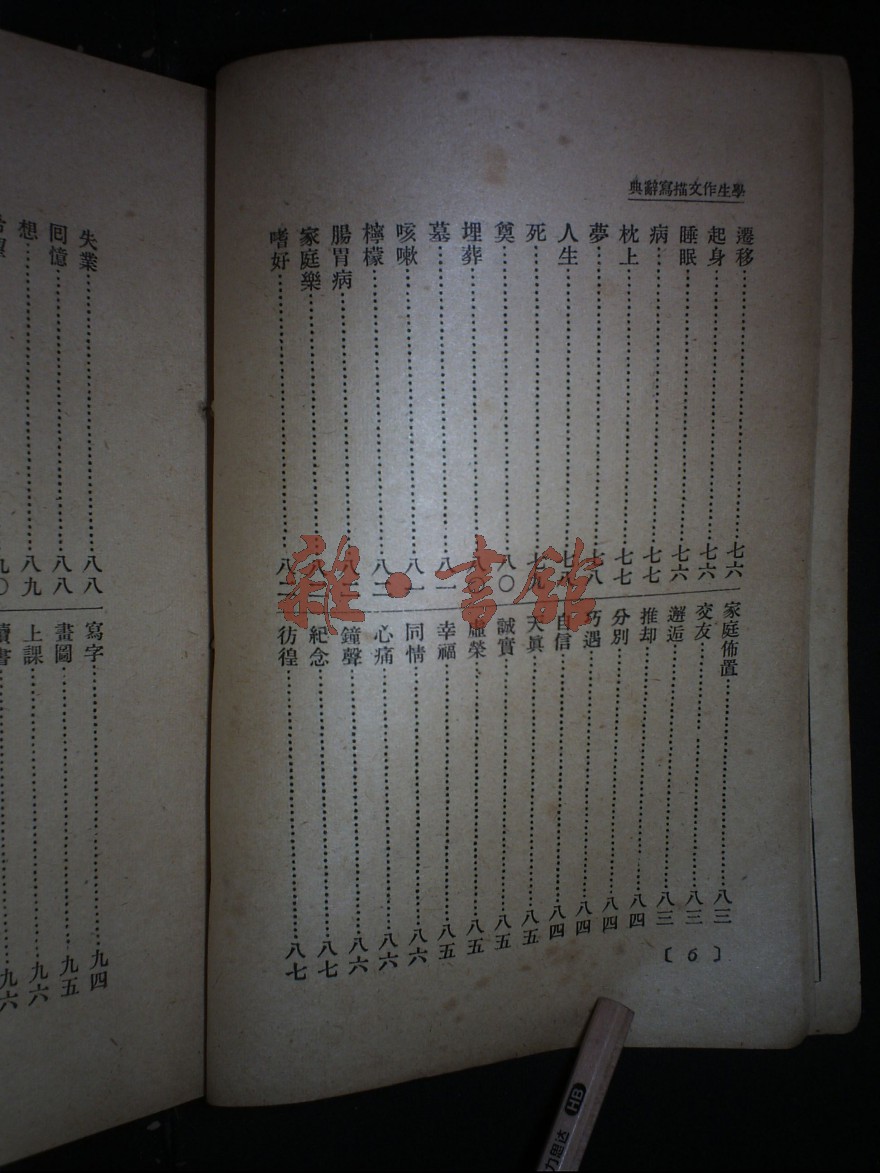 學生作文描寫辭典
遷移……七六
起身……七六
睡眠……七六
病……七七
枕上……七七
夢……七八
人生……七八
死……七九
奠……八〇
埋葬……八〇
墓……八一
咳嗽……八一
檸檬……八二
腸胃病……八二
家庭樂……八二
嗜好……八二
家庭佈置……八三
交友……八三
邂逅……八三
推却……八四
分別……八四
巧遇……八四
自信……八四
天眞……八五
誠實……八五
虛榮……八五
幸福……八五
同情……八六
心痛……八六
鐘聲……八六
紀念……八七
彷徨……八七
〔6〕
失業……八八
回憶……八八
想……八九
九〇
寫字……九四
畫圖……九五
上課……九六
讀書……九六
雜·書館
HB
力思达